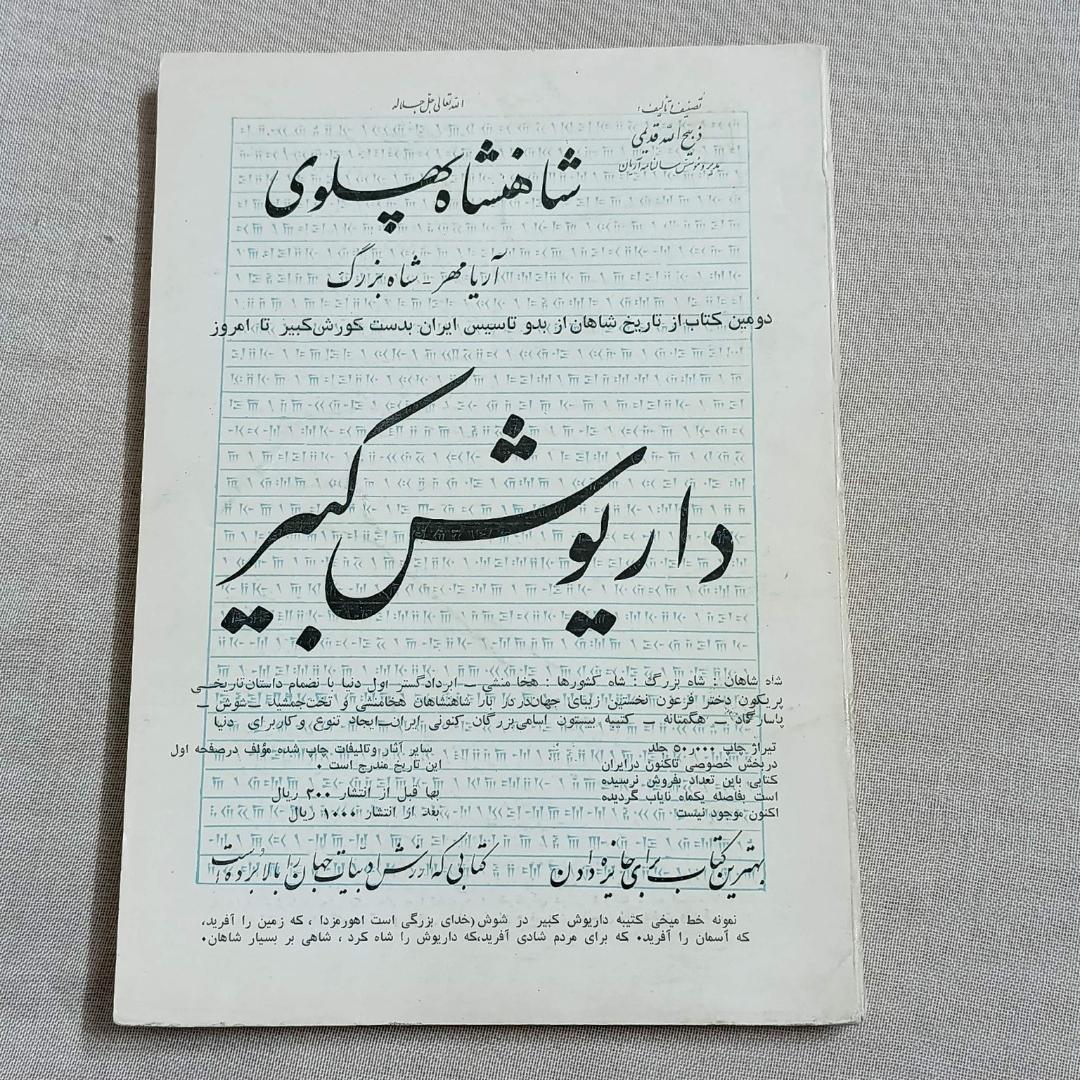 الله تعالی جل جلاله
تصنیف و تالیف:
ذبیح الله قدیمی
مدیر و مؤسس سالنامه آریان
شاهنشاه پهلوی
آریامهر - شاه بزرگ
دومین کتاب از تاریخ شاهان از بدو تاسیس ایران بدست کورش کبیر تا امروز
داریوش کبیر
شاه شاهان : شاه بزرگ : شاه کشورها : هخامنشی ــ ابردادگستر اول دنیا با نضمام داستان تاریخی
پریگون دختر فرعون نخستین زیبای جهان در دربار شاهنشاهان هخامنشی و تخت جمشید ــ شوش ــ
پاسارگاد ــ هگمتانه ــ کتیبه بیستون اسامی بزرگان کنونی ایران ــ ایجاد تنوع و کار برای دنیا
تیراژ چاپ ۵۰٫۰۰۰ جلد
دربخش خصوصی تاکنون در ایران
کتابی باین تعداد بفروش نرسیده
است بفاصله یکماه نایاب گردیده
اکنون موجود نیست
سایر آثار و تالیفات چاپ شده مؤلف در صفحه اول
این تاریخ مندرج است .
بها قبل از انتشار ۲۰۰ ریال
بعد از انتشار ۱۰۰۰ ریال
بهترین کتاب برای جایزه دادن
کتابی که ارزش ادبیات جهان را بالا برده است
نمونه خط میخی کتیبه داریوش کبیر در شوش (خدای بزرگی است اهورمزدا ، که زمین را آفرید،
که آسمان را آفرید. که برای مردم شادی آفرید،که داریوش را شاه کرد ، شاهی بر بسیار شاهان.